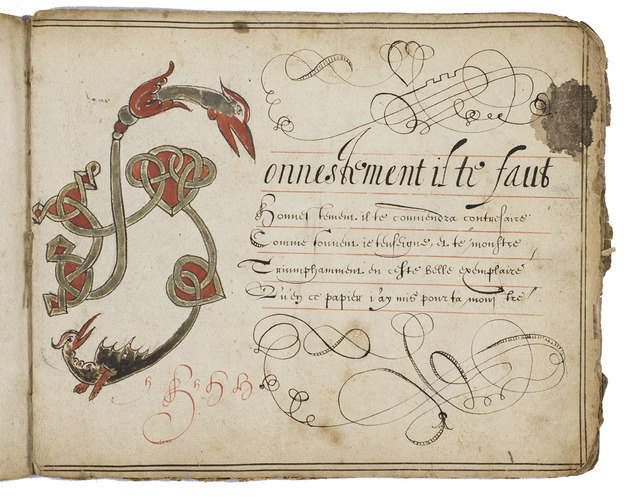 Honnestement il te faut
Honnestement il te conviendra contrefaire
Comme souvent ie tenseigne, et te monstre
Triumphamment en ceste belle exemplaire
Qu'en ce papier i'ay mis pour ta monstre
h h h h